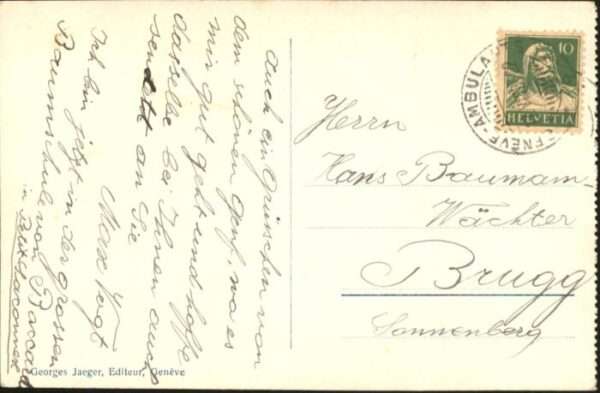 auch ein Grüsschen von
dem schönen Genf, wo es
mir gut geht und hoffe
dasselbe bei Ihnen auch
sendet an Sie
Max Vogt
Ich bin jetzt in der grossen
Baumschule von Baccard
in Petit Saconnex
Georges Jaeger, Editeur, Genève
10
HELVETIA
AMBULA
GENÈVE
Herrn
Hans Baumann-
Wächter
Brugg
Sonnenberg